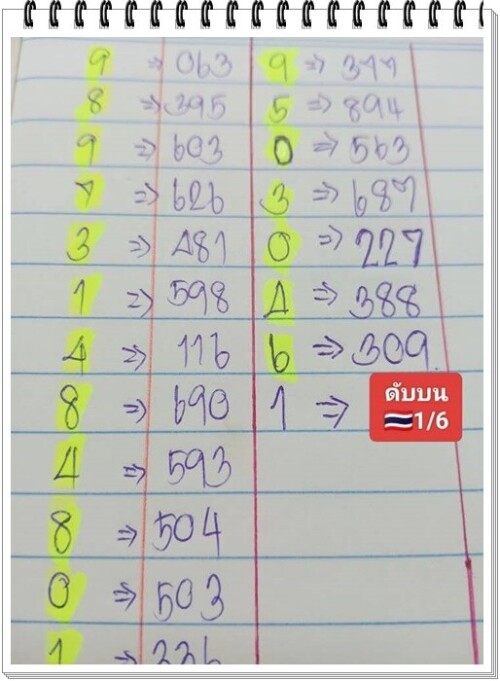 9 => 063
8 => 395
9 => 603
7 => 626
3 => 481
1 => 598
4 => 116
8 => 690
4 => 593
8 => 504
0 => 503
1 => 336
9 => 377
5 => 894
0 => 563
3 => 687
0 => 227
4 => 388
6 => 309
1 =>
ดับบน
1/6